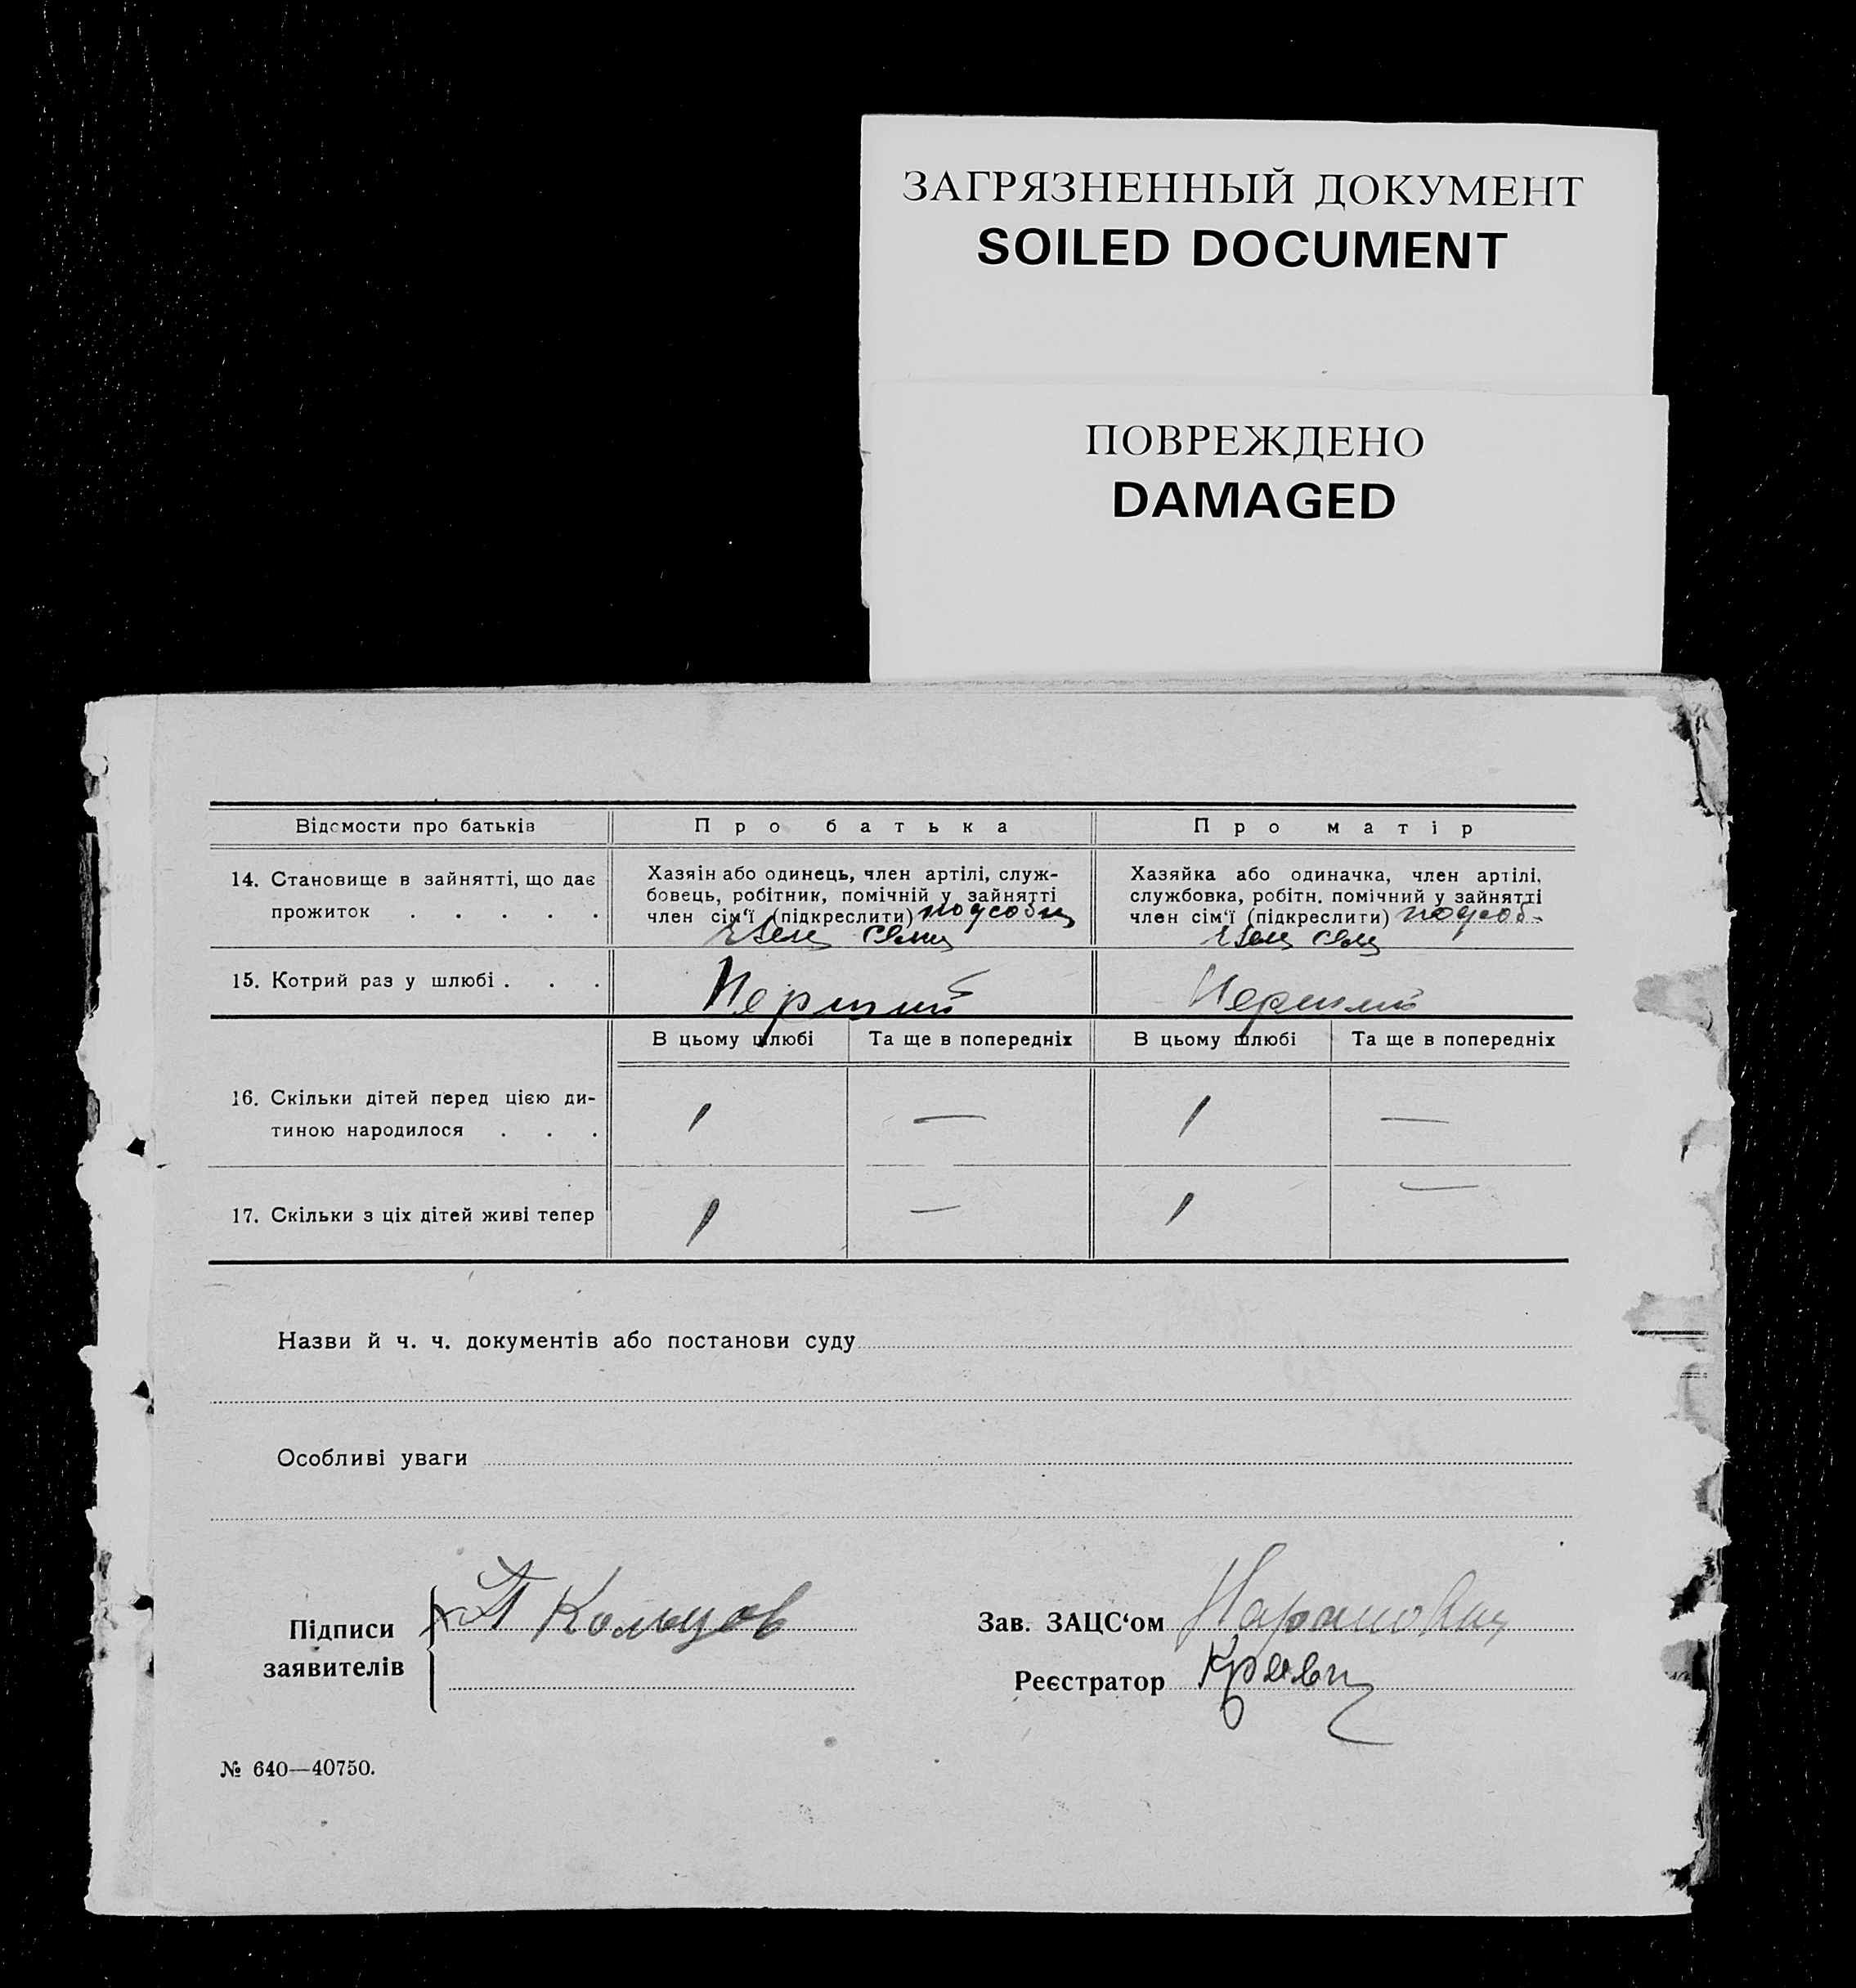 ЗАГРЯЗНЕННЫЙ ДОКУМЕНТ
SOILED DOCUMENT
ПОВРЕЖДЕНО
DAMAGED
Відомости про батьків
Про батька
Про матір
14. Становище в зайнятті, що дає
прожиток . . . . .
Хазяін або одинець, член артілі, служ-
бовець, робітник, помічній у зайнятті
член сім'ї (підкреслити)
Хазяйка або одиначка, член артілі,
службовка, робітн. помічний у зайнятті
член сім'ї (підкреслити) подсоб-
15. Котрий раз у шлюбі . . .
Перший
Перший
В цьому шлюбі
Та ще в попередніх
В цьому шлюбі
Та ще в попередніх
16. Скільки дітей перед цією ди-
тиною народилося . . .
1 — 1 —
17. Скільки з ціх дітей живі тепер
1 — 1 —
Назви й ч. ч. документів або постанови суду
Особливі уваги
Підписи
заявителів
Кольцов
Зав. ЗАЦС'ом
Реєстратор
№ 640—40750.